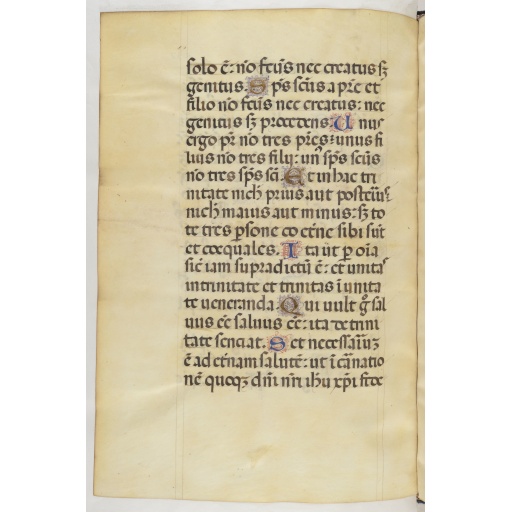 solo ē: nō fcūs nec creatus sȝ
genitus. Sp̄s scūs a pr̄e et
filio nō fcūs nec creatus: nec
genitus sȝ procedens. Unus
ergo pr̄ nō tres pr̄es: unus fi
lius nō tres filij: un' sp̄s scūs
nō tres sp̄s sc̄i. Et in hac tri
nitate nich' prius aut posteriꝰ:
nich' maius aut minus: sȝ to
te tres ꝑsone coet̄ne sibi sūt
et coequales. Ita ut ꝑ oīa
sic̄ iam supradictū ē: et unitas
in trinitate et trinitas ī unita
te ueneranda. Qui uult gͦ sal
uus eē saluus eē: ita de trini
tate senciat. Set necessariūȝ
ē ad et̄nam salutē: ut īcarnatio
nē quoqȝ dn̄i nr̄i ihū xp̄i fide